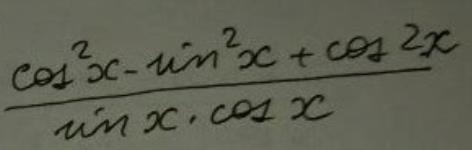 cos²x - sin²x + cos 2x
sin x . cos x